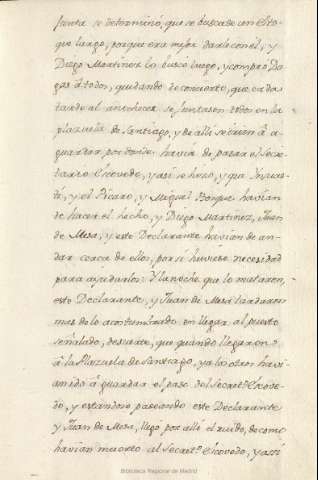 junta se determinó, que se buscase un Esto-
que largo, porque era mejor darle con él, y
Diego Martinez lo buscó luego, y compró Da-
gas â todos, quedando de concierto, que cada
tarde al anochecer se juntasen todos en la
plazuela de Santiago, y de alli se iesen â a-
guardar por donde havia de pasar el Secre-
tario Escovedo, y asi se hizo, y que Insaus-
ti, y el Picaro, y Miguel Bosque havian
de hacer el hecho, y Diego Martinez, Juan
de Mesa, y este Declarante havian de an-
dar cerca de ellos, por si huviese necesidad
para ayudarlos. Y la noche que lo mataron,
este Declarante, y Juan de Mesa tardaron
mas de lo acostumbrado en llegar al puesto
señalado, de suerte, que quando llegaron
â la Plazuela de Santiago, ya los otros havi-
an ido â guardar el paso del Secret.o Escove-
do, y estandose paseando este Declarante
y Juan de Mesa, llegó por alli el ruido, de como
havian muerto al Secret.o Escovedo, y assi
Biblioteca Regional de Madrid